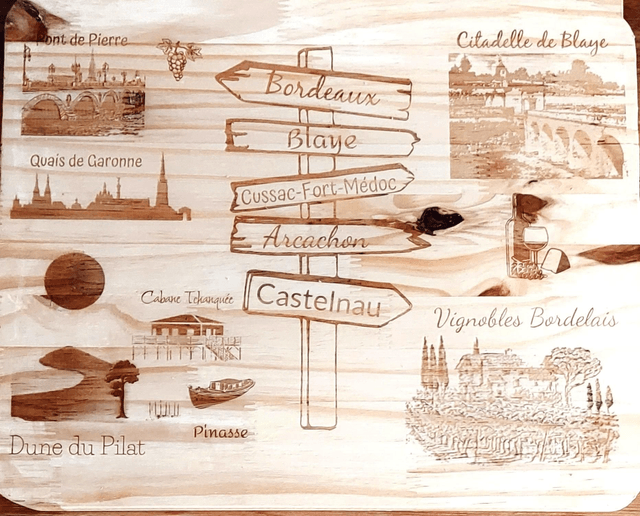 Pont de Pierre
Citadelle de Blaye
Bordeaux
Blaye
Quais de Garonne
Cussac-Fort-Médoc
Arcachon
Castelnau
Cabane Tchanquée
Vignobles Bordelais
Pinasse
Dune du Pilat